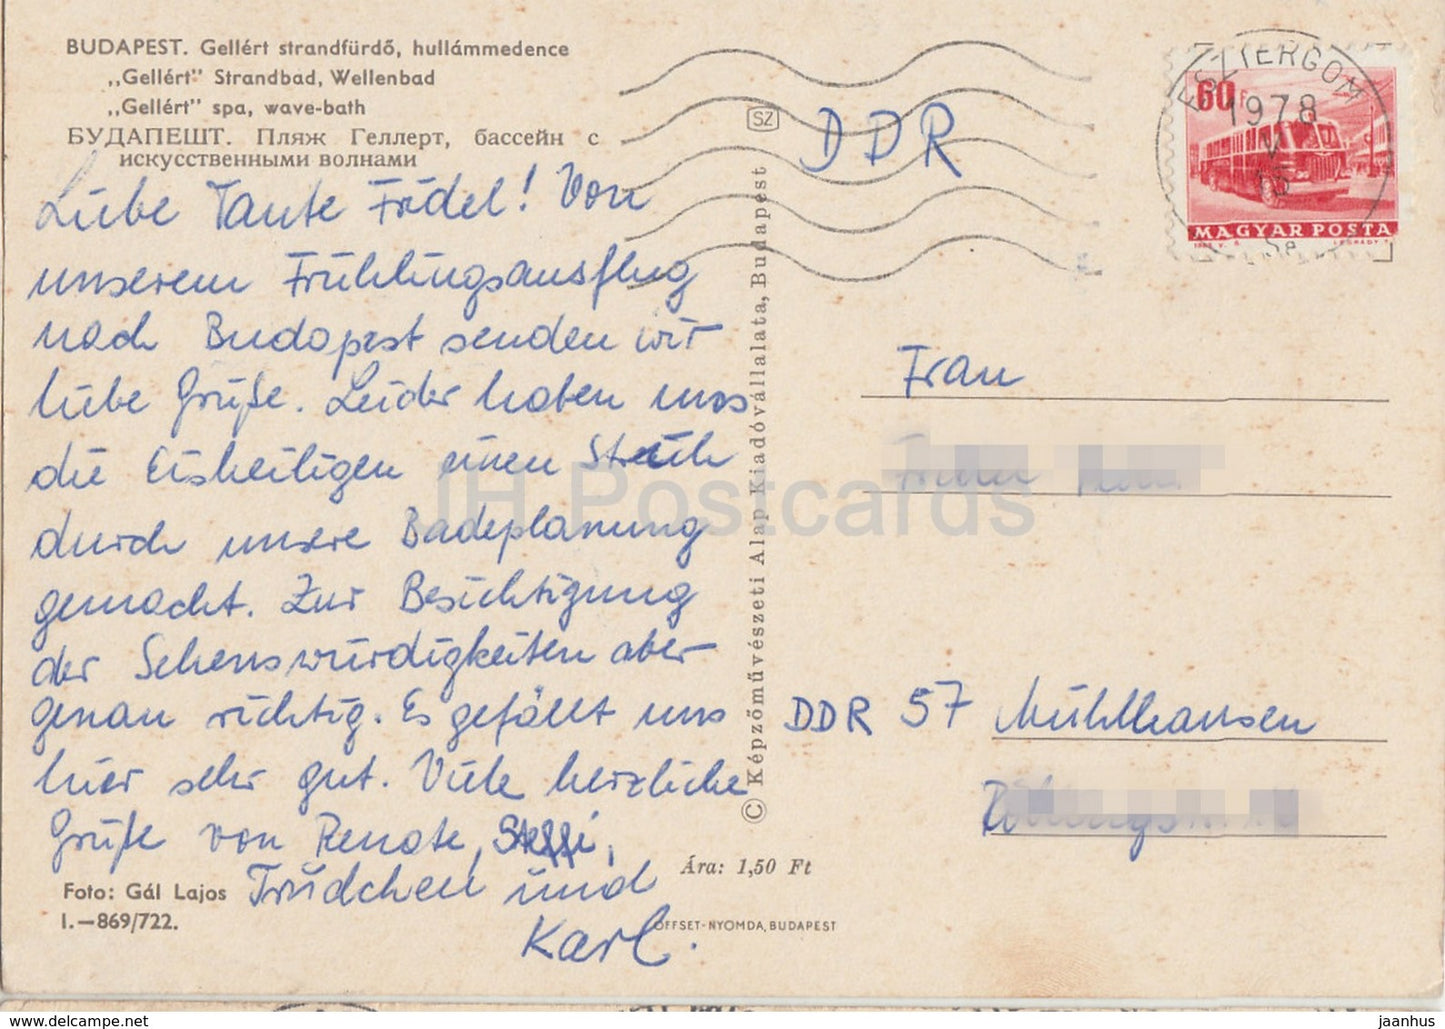 BUDAPEST. Gellért strandfürdő, hullámmedence
„Gellért" Strandbad, Wellenbad
„Gellért" spa, wave-bath
БУДАПЕШТ. Пляж Геллерт, бассейн с
искусственными волнами
Liebe Tante Friedel! Von
unserem Frühlingsausflug
nach Budapest senden wir
liebe Grüße. Leider haben uns
die Eisheiligen einen Strich
durch unsere Badeplanung
gemacht. Zur Besichtigung
der Sehenswürdigkeiten aber
genau richtig. Es gefällt uns
hier sehr gut. Viele herzliche
Grüße von Renate, Steffi,
Trudchen und
Karl.
Foto: Gál Lajos
I.—869/722.
© Képzőművészeti Alap Kiadóvállalata, Budapest
SZ
Ára: 1,50 Ft
OFFSET-NYOMDA, BUDAPEST
DDR
ESZTERGOM
1978
V
15
60f
MAGYAR POSTA
Frau
DDR 57 Mühlhausen
JH Postcards
www.hippostcard.com/store/jh-postcards-online
jaanhus